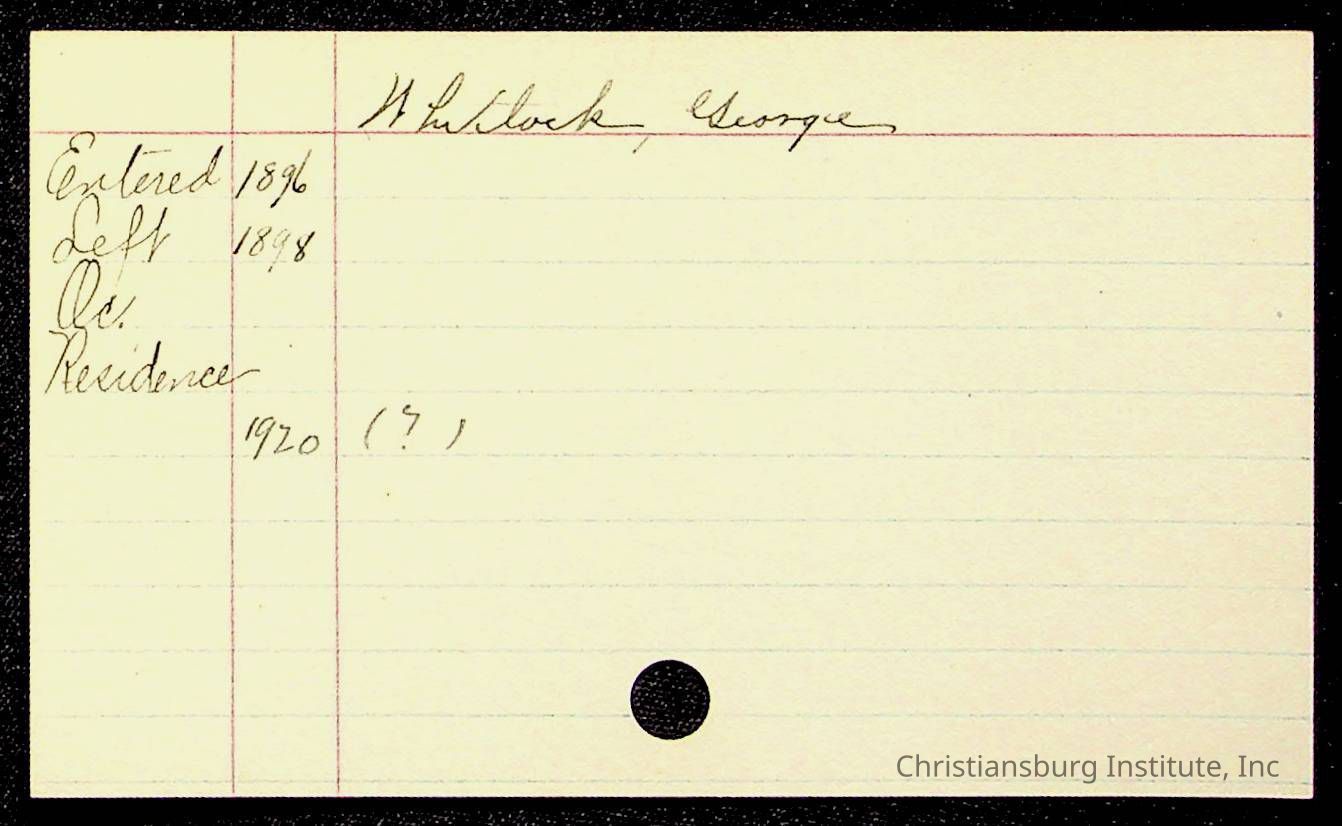 Whitlock, George
Entered 1896
Left 1898
Oc.
Residence
1920 (?)
Christiansburg Institute, Inc